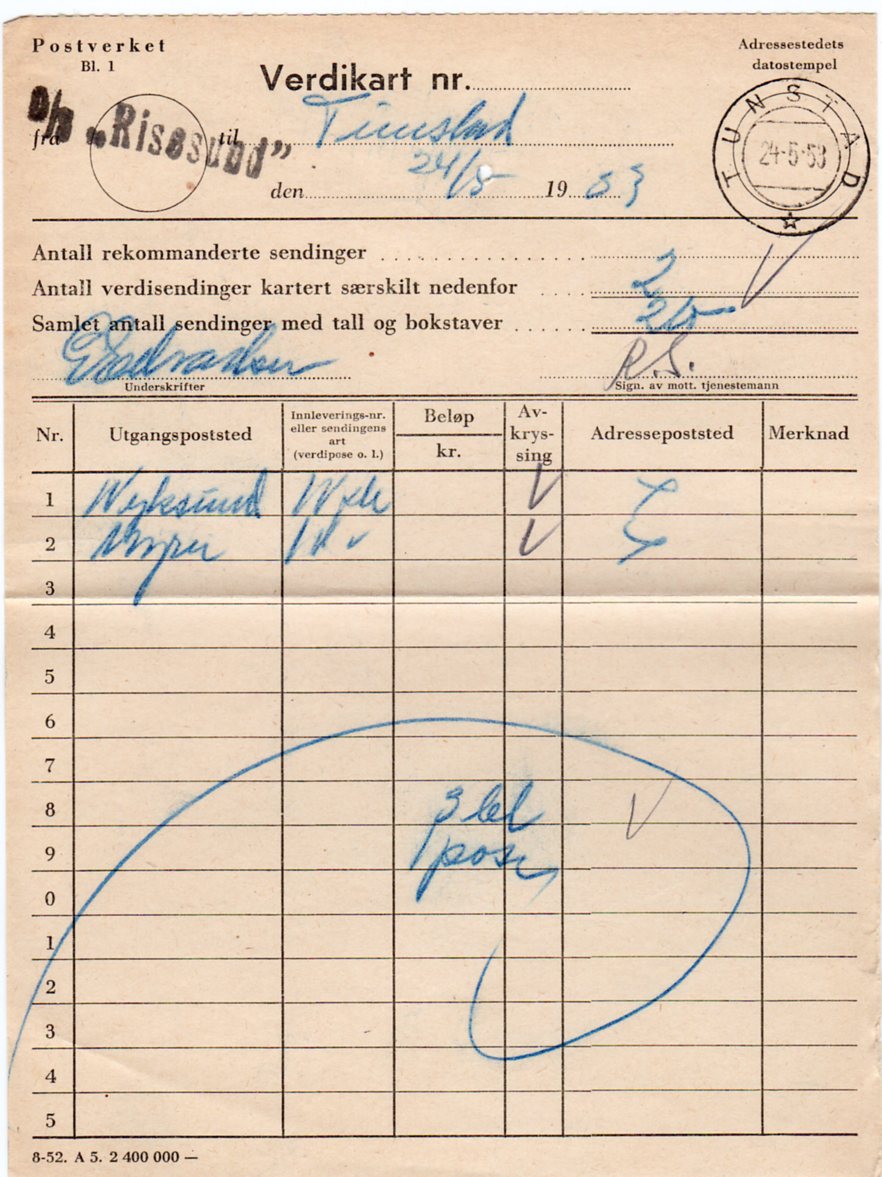 Postverket
Bl. 1
Adressestedets
datostempel
Verdikart nr.
fra D/S „Risøsund” til Tunstad
TUNSTAD
24-5-53
den 24/5 1953
Antall rekommanderte sendinger
Antall verdisendinger kartert særskilt nedenfor 2
Samlet antall sendinger med tall og bokstaver
R.S.
Underskrifter
Sign. av mott. tjenestemann
Nr. Utgangspoststed Innleverings-nr. eller sendingens art (verdipose o. l.) Beløp kr. Av-krys-sing Adressepoststed Merknad
1
2
3
4
5
6
7
8 3 lel
9 poser
0
1
2
3
4
5
8-52. A 5. 2 400 000 —